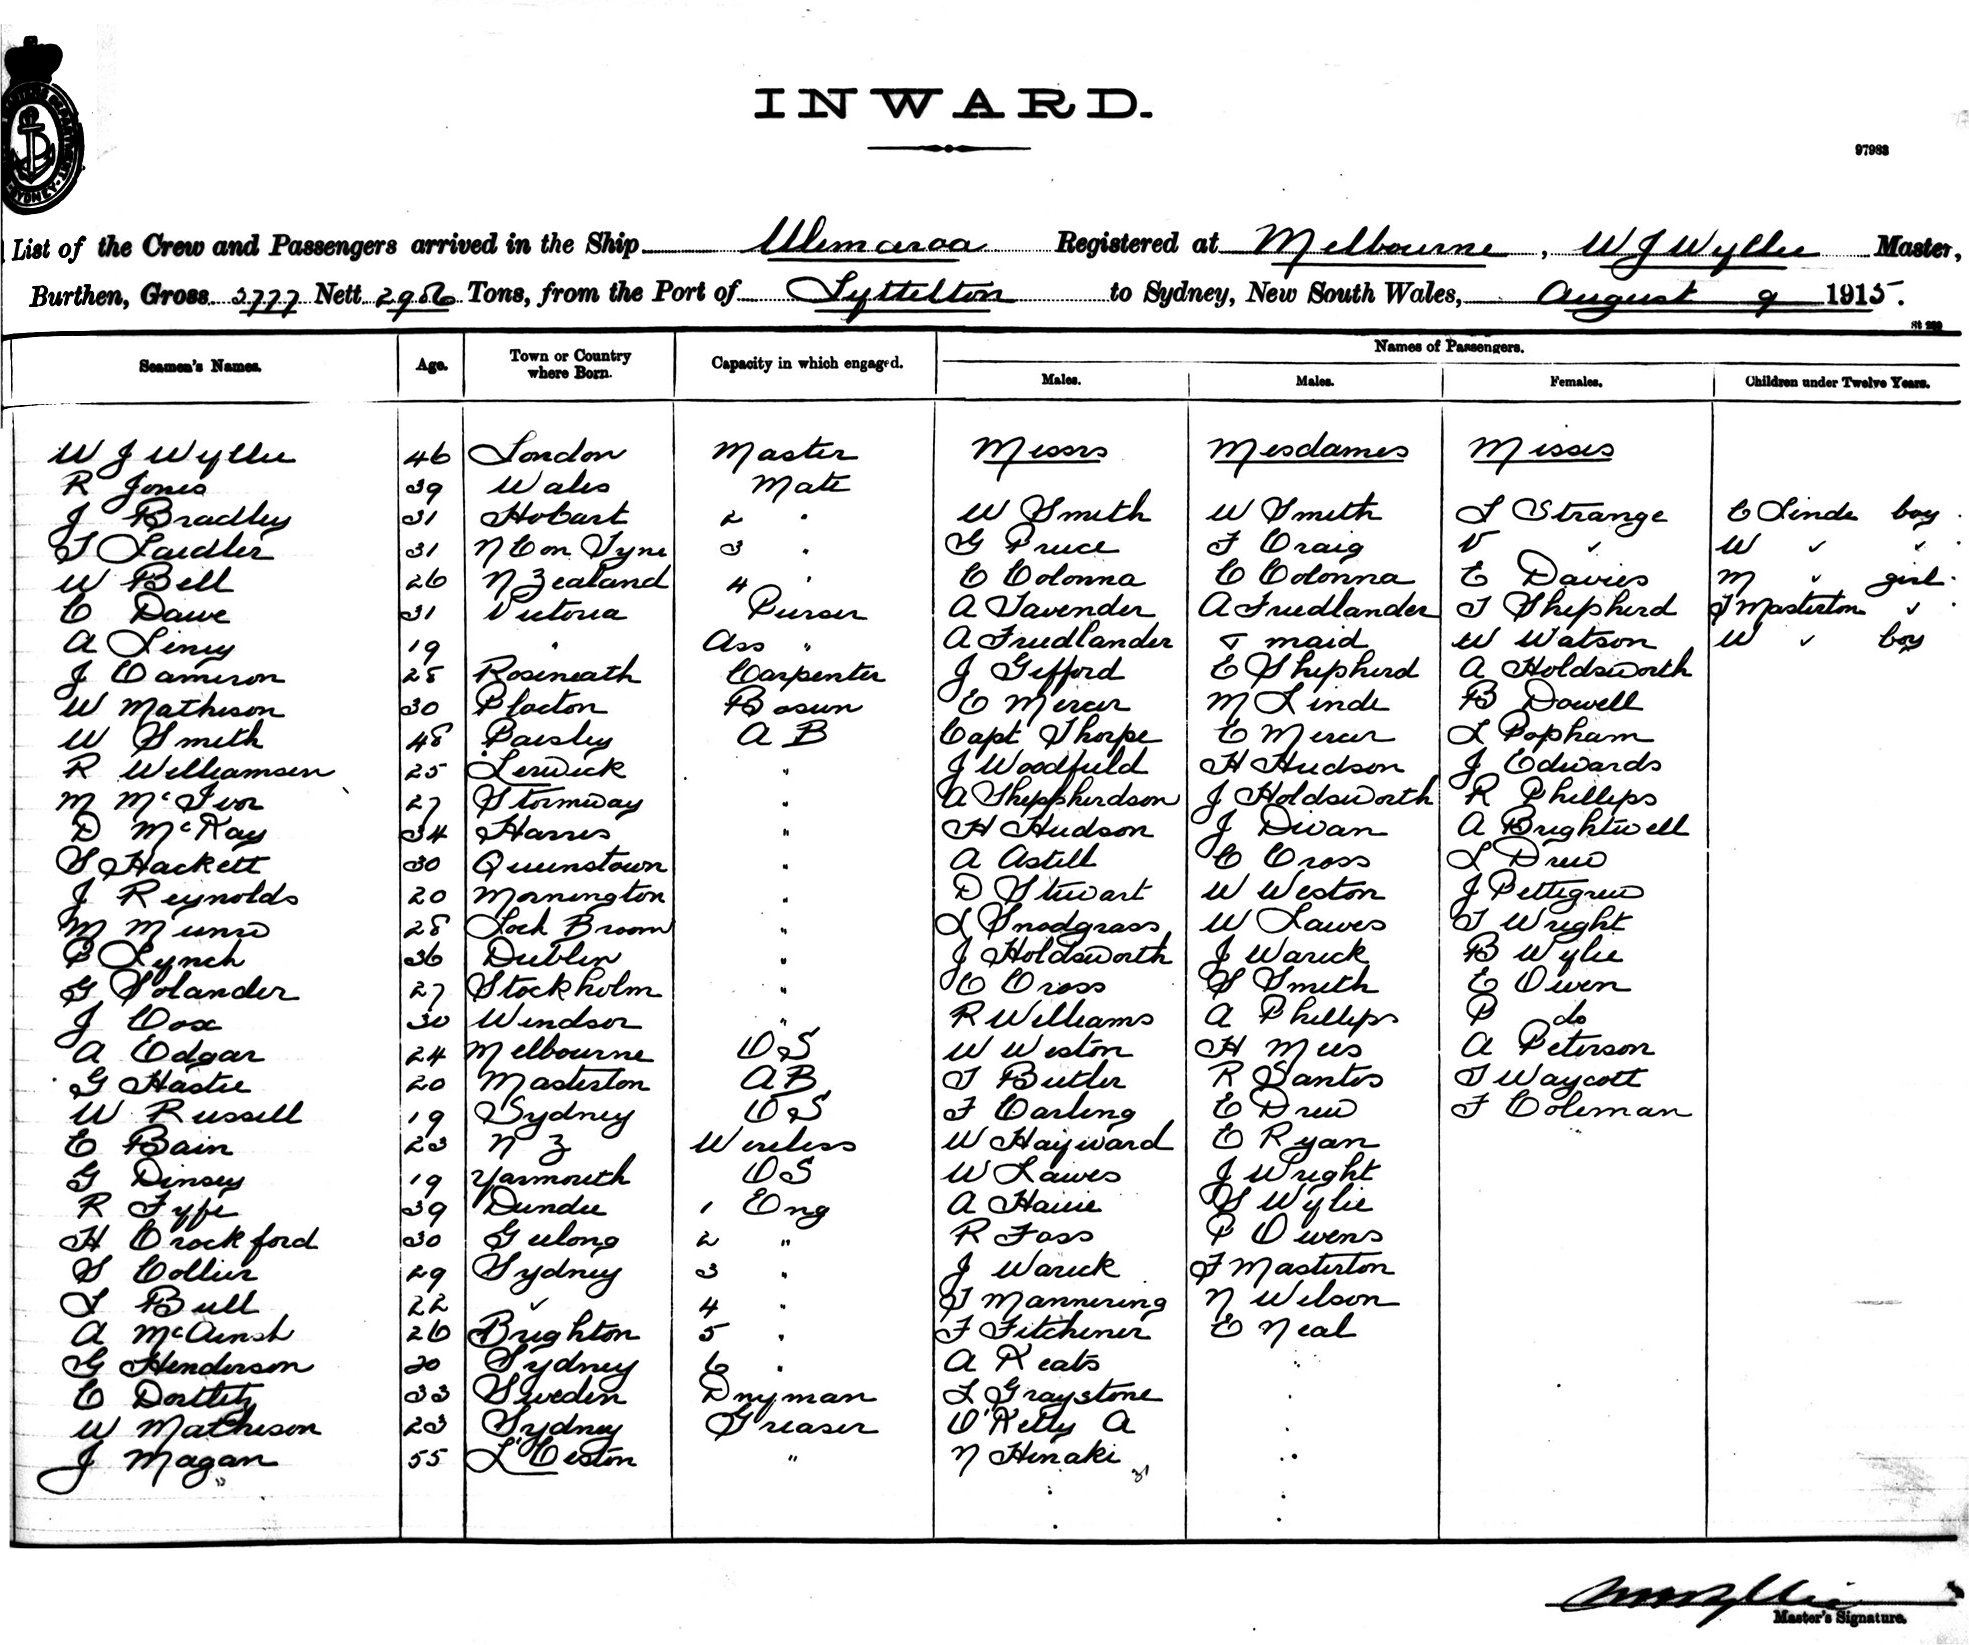 INWARD.
97983
List of the Crew and Passengers arrived in the Ship Ulimaroa Registered at Melbourne, W J Wyllie Master,
Burthen, Gross 5777 Nett Tons, from the Port of Lyttelton to Sydney, New South Wales, August 9 1915.
Seamen's Names. Age. Town or Country where Born. Capacity in which engaged. Names of Passengers.
Males. Males. Females. Children under Twelve Years.
W J Wyllie 46 London Master Messrs Mesdames Misses
R Jones 39 Wales Mate
J Bradley 31 Hobart 2 " W Smith W Smith L Strange C Linde boy
T Laidler 31 N C on Tyne 3 " G Pruce F Craig V " W " "
W Bell 26 N Zealand 4 " C Colonna C Colonna E Davies M " girl
C Dawe 31 Victoria Purser A Tavender A Friedlander T Shepherd F Masterton "
A Liney 19 " Ass " A Friedlander & maid W Watson W " boy
J Cameron 28 Roseneath Carpenter J Gifford E Shepherd A Holdsworth
W Matheson 30 Plocton Bosun E Mercer M Linde B Dowell
W Smith 48 Paisley A B Capt Thorpe E Mercer L Popham
R Williamson 25 Lerwick " J Woodfield H Hudson J Edwards
M McIvor 27 Stornway " A Sheppherdson J Holdsworth R Phillips
D McKay 34 Harris " H Hudson J Divan A Brightwell
S Hackett 30 Queenstown " A Astell C Cross L Drew
J Reynolds 20 Mornington " D Stewart W Weston J Pettigrew
M Munro 28 Loch Broom " L Snodgrass W Lawes T Wright
P Lynch 36 Dublin " J Holdsworth J Warick B Wylie
G Solander 27 Stockholm " C Cross S Smith E Owen
J Cox 30 Windsor " R Williams A Phillips P do
A Edgar 24 Melbourne O S W Weston H Mees A Peterson
G Hastie 20 Masterton A B T Butler R Santos T Waycott
W Russell 19 Sydney O S F Carling E Drew F Coleman
E Bain 23 N Z Wireless W Hayward E Ryan
G Dinsey 19 Yarmouth O S W Lawes J Wright
R Fyfe 39 Dundee 1 Eng A Haiie S Wylie
H Crockford 30 Geelong 2 " R Foss P Owens
S Collier 29 Sydney 3 " J Warick F Masterton
L Bull 22 " 4 " T Mannering N Wilson
A McAinsh 26 Brighton 5 " F Fitchener E Neal
G Henderson 20 Sydney 6 " A Keats
C 33 Sweden Dnyman L Graystone
W Matheson 23 Sydney Greaser O'Kelly A
J Magan 55 L'Ceston " N Hinaki
Master's Signature.